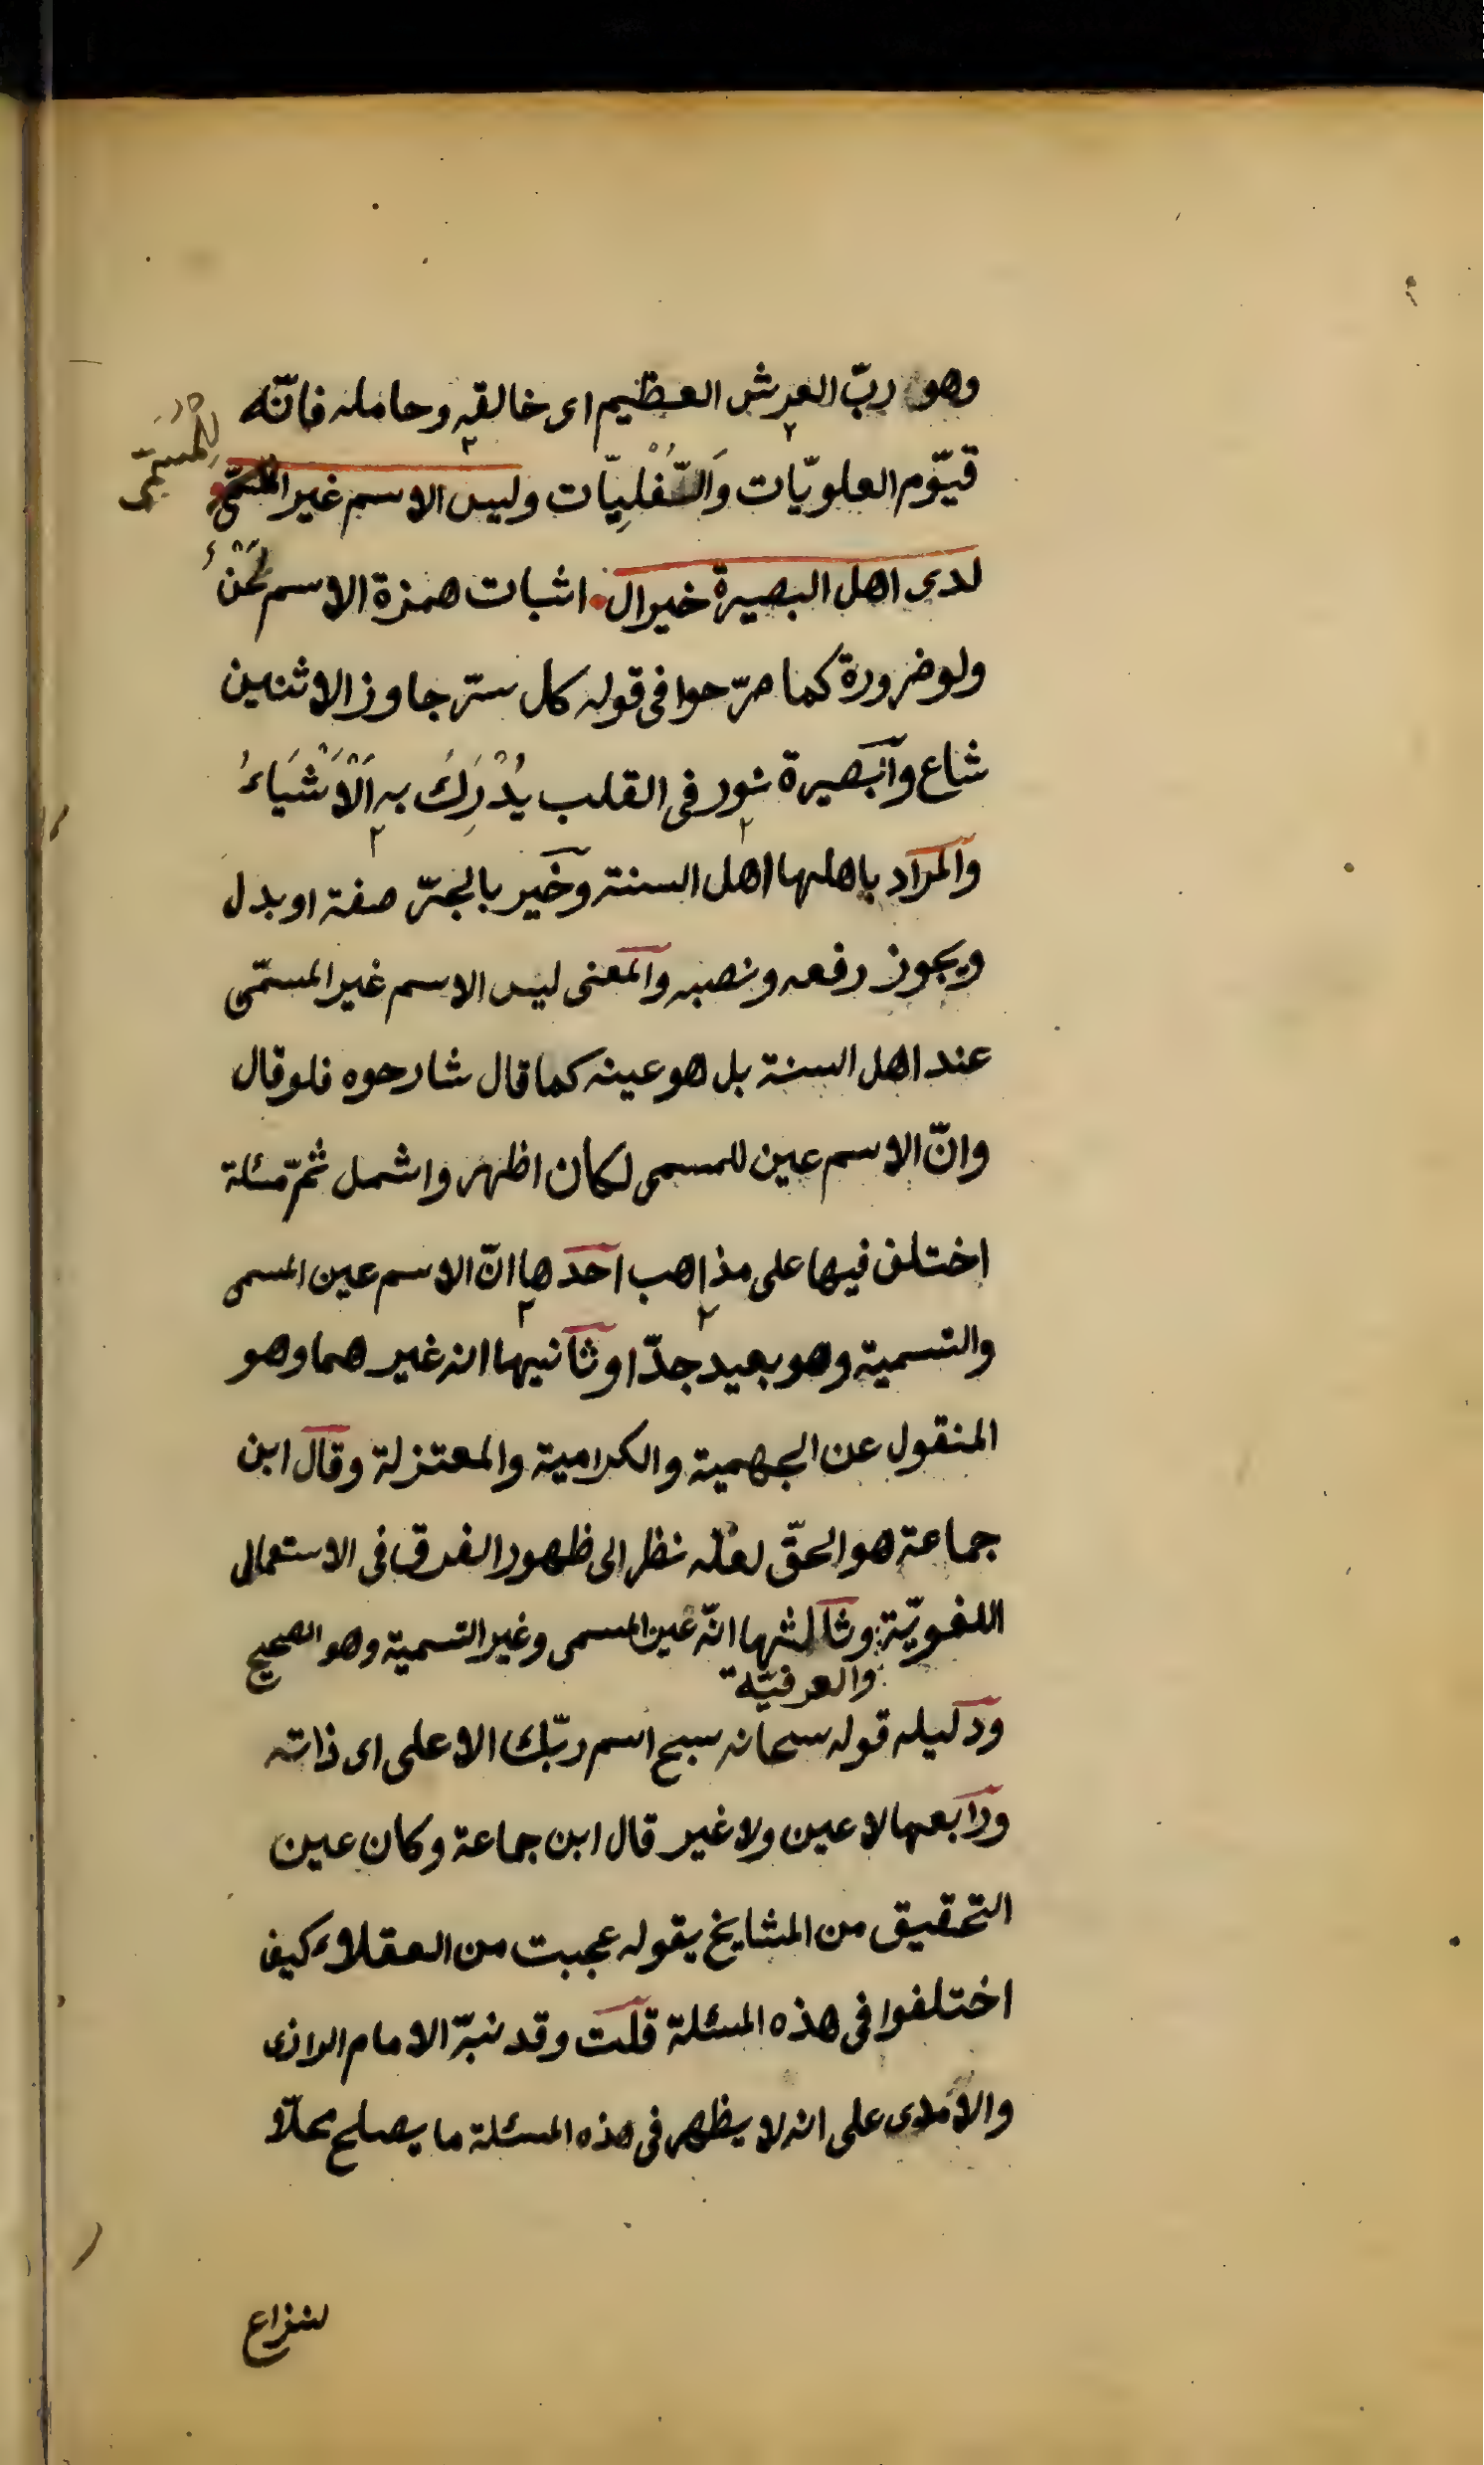 وهو ربّ العرش العظيم اى خالقه وحامله فانّه
للمسمّى
قيّوم العلويّات وَالسُّفْلِيّات وليس الاسم غير المسمّى
لدى اهل البصيرة خير ال اثبات همزة الاسم لَحْنٌ
ولو ضرورة كما صرّحوا فى قوله كل ستر جاوز الاثنين
شاع وآلبصيرة نور فى القلب يُدْرَكُ به اَلْاَشْيَاءُ
والمراد باهلها اهل السنة وخير بالجرّ صفة او بدل
ويجوز رفعه ونصبه والمعنى ليس الاسم غير المسمّى
عند اهل السنة بل هو عينه كما قال شارحوه فلو قال
وانّ الاسم عين للمسمى لكان اظهر واشمل ثمّ مسئلة
اختلف فيها على مذاهب احدها انّ الاسم عين المسمى
والتسمية وهو بعيد جدّا وثانيها انه غيرهما وهو
المنقول عن الجهمية والكرامية والمعتزلة وقال ابن
جماعة هو الحقّ لعلّه نظر الى ظهور الفرق فى الاستعمال
اللغويّة وثالثها انّه عين المسمى وغير التسمية وهو الصحيح
والعرفيّة
ودليله قوله سبحانه سبح اسم ربّك الاعلى اى ذاته
ورابعها لا عين ولا غير قال ابن جماعة وكان عين
التحقيق من المشايخ يقوله عجبت من العقلاء كيف
اختلفوا فى هذه المسئلة قلت وقد نبّه الامام الرازى
والآمدى على انه لا يظهر فى هذه المسئلة ما يصلح محلّا
لنزاع